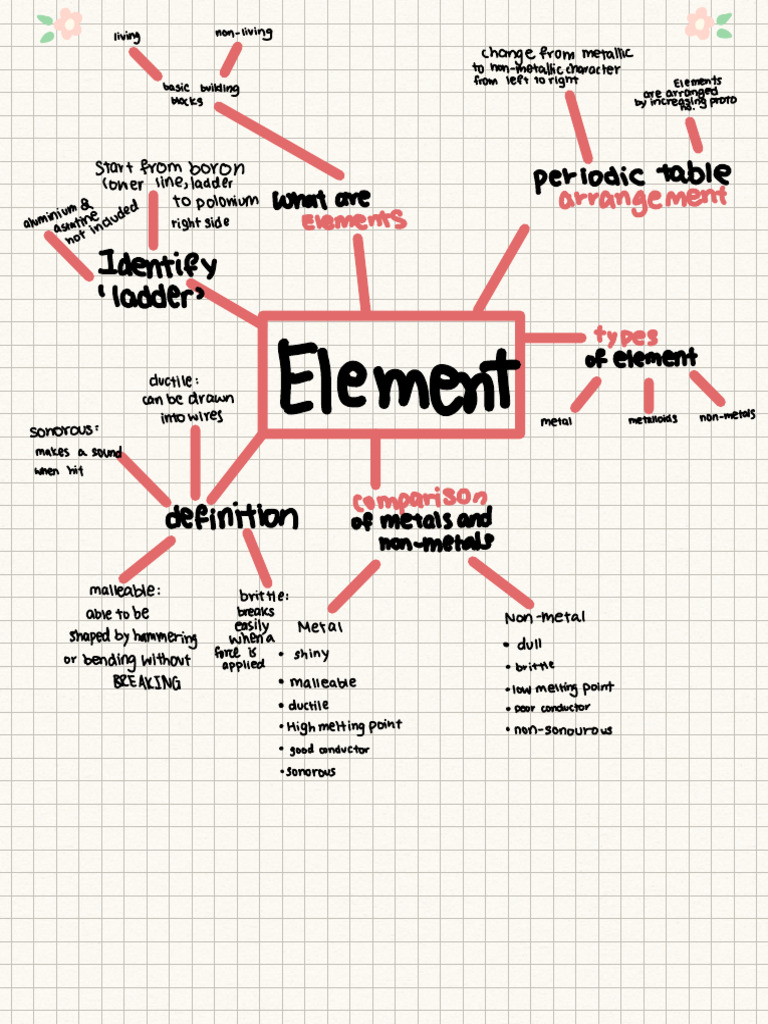 living
non-living
basic building
blocks
What are
Elements
change from metallic
to non-metallic character
from left to right
Elements
are arranged
by increasing proto
no.
periodic table
arrangement
Start from boron
coner line, ladder
to polonium
right side
aluminium &
astatine
not included
Identify
'ladder'
Element
types
of element
metal
metalloids
non-metals
ductile:
can be drawn
into wires
sonorous:
makes a sound
when hit
definition
malleable:
able to be
shaped by hammering
or bending without
BREAKING
brittle:
breaks
easily
when a
force is
applied
comparison
of metals and
non-metals
Metal
• shiny
• malleable
• ductile
• High melting point
• good conductor
• sonorous
Non-metal
• dull
• brittle
• low melting point
• poor conductor
• non-sonourous